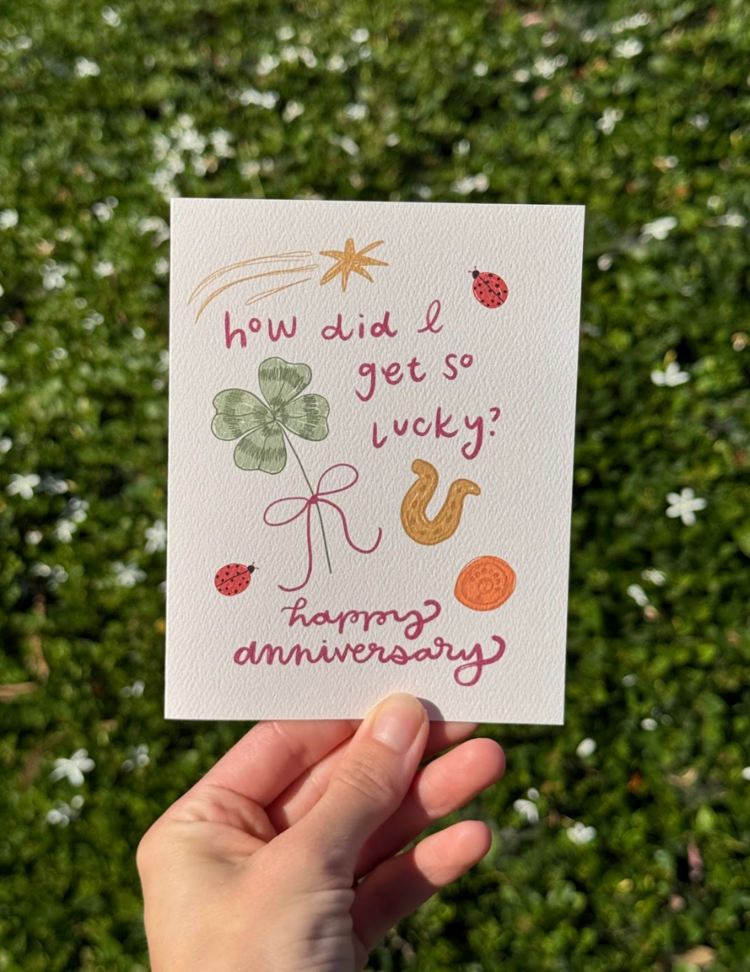 how did I
get so
lucky?
happy
anniversary